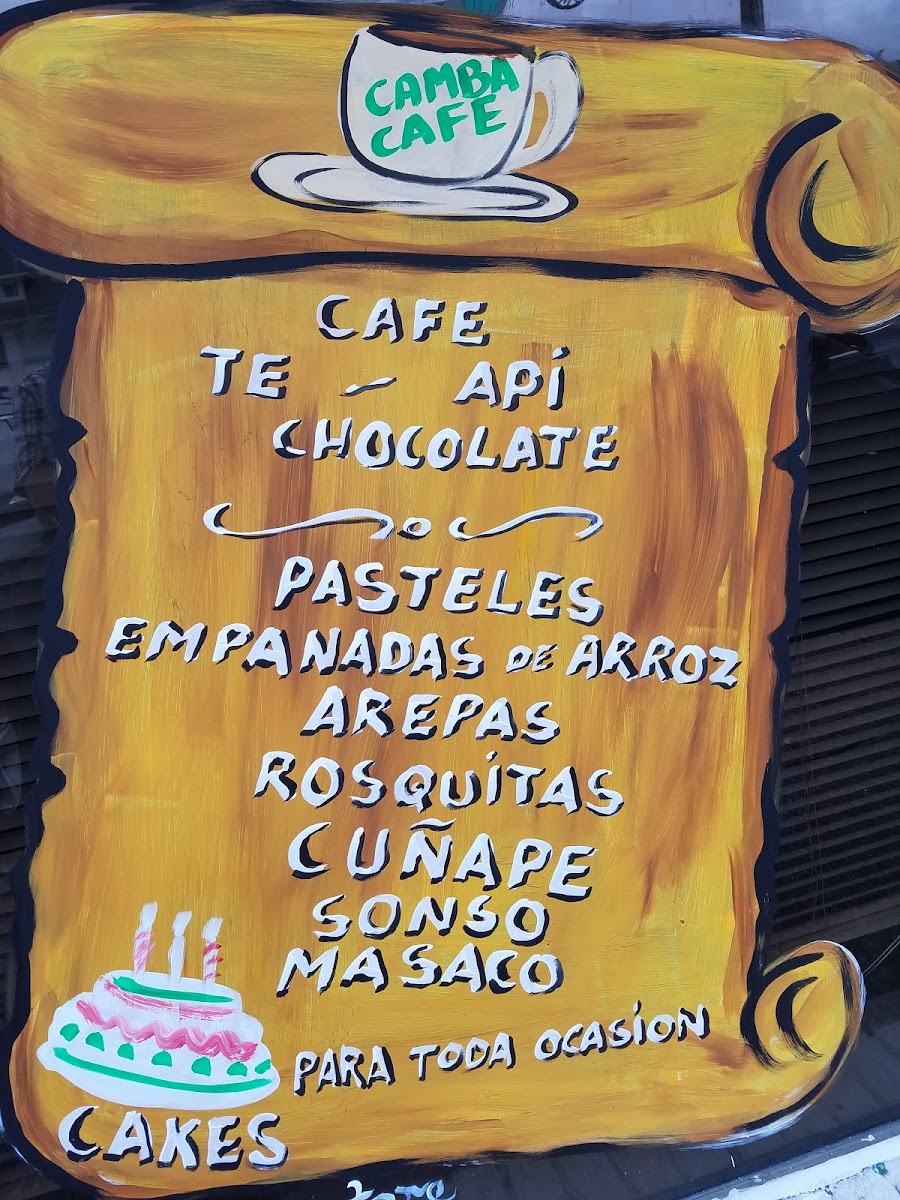 CAMBA
CAFE
CAFE
TE - API
CHOCOLATE
PASTELES
EMPANADAS DE ARROZ
AREPAS
ROSQUITAS
CUÑAPE
SONSO
MASACO
PARA TODA OCASION
CAKES